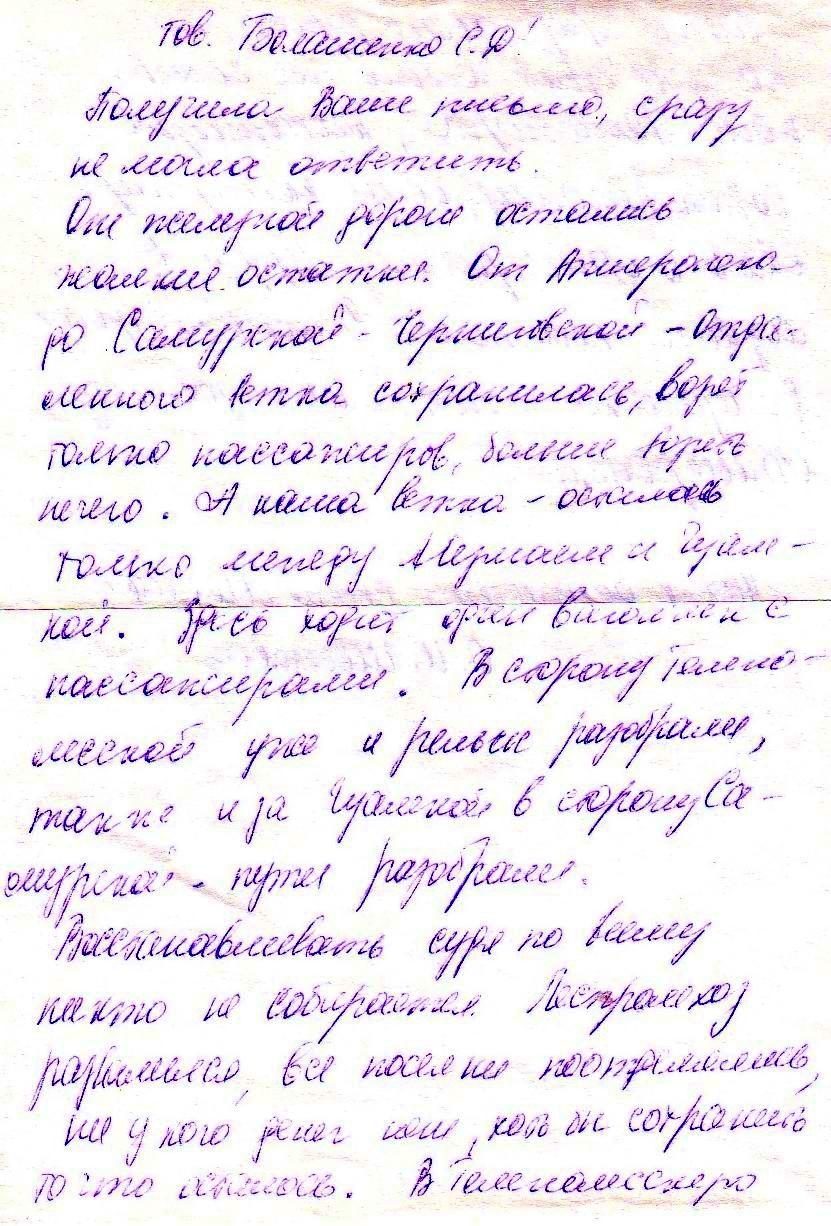 тов. Болашенко С.Д!
Получила Ваше письмо, сразу
не могла ответить.
От железной дороги остались
жалкие остатки. От Апшеронска
до Самурской - Черниговской - Отда-
ленного ветка сохранилась, возят
только пассажиров, больше возить
нечего. А наша ветка - осталась
только между Мезмаем и Гуам-
кой. Здесь ходит один вагончик с
пассажирами. В сторону Темно-
лесской уже и рельсы разобрали,
также и за Гуамкой в сторону Са-
мурской - пути разобрали.
Восстанавливать судя по всему
никто не собирается. Леспромхоз
развалился, все поселки
ни у кого денег нет, хоть бы сохранить
то что осталось. В